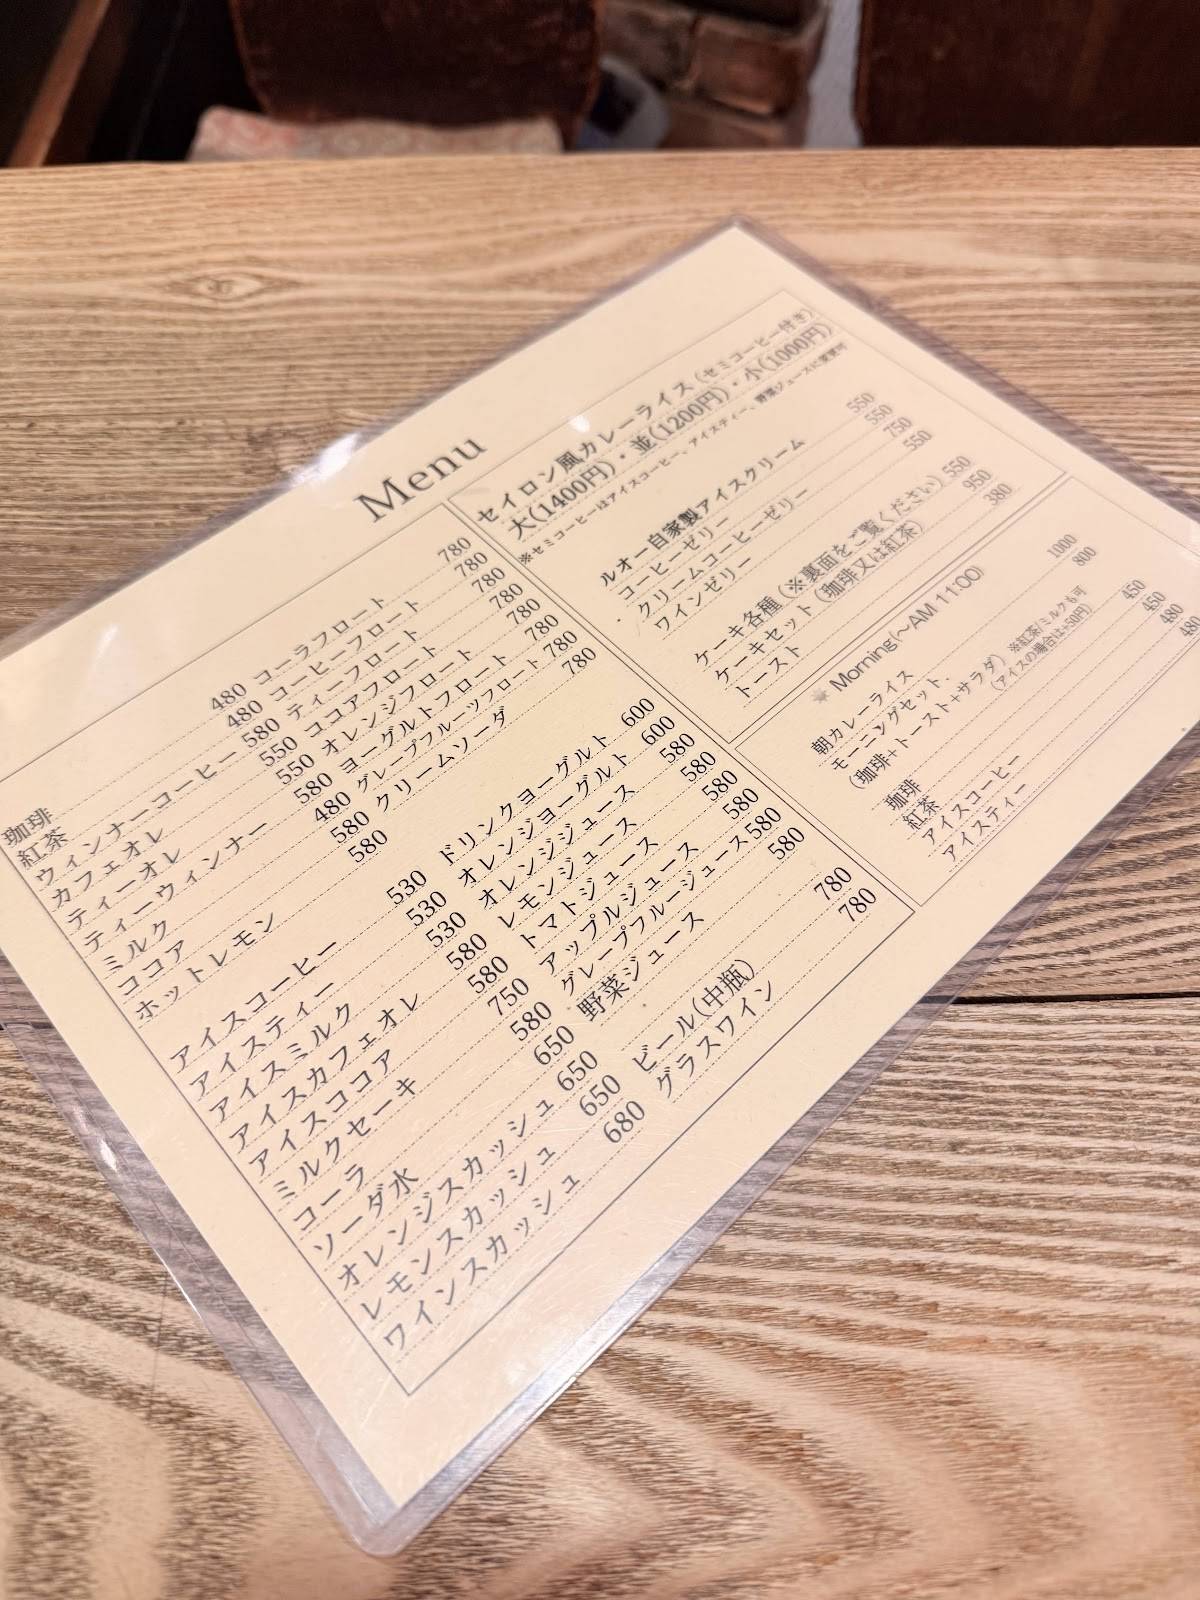 Menu
珈琲 480
紅茶 480
ウィンナーコーヒー 580
カフェオレ 550
ティーオレ 550
ティーウィンナー 580
ミルク 480
ココア 580
ホットレモン 580
アイスコーヒー 530
アイスティー 530
アイスミルク 530
アイスカフェオレ 580
アイスココア 580
ミルクセーキ 750
コーラ 580
ソーダ水 650
オレンジスカッシュ 650
レモンスカッシュ 650
ワインスカッシュ 680
コーラフロート 780
コーヒーフロート 780
ティーフロート 780
ココアフロート 780
オレンジフロート 780
ヨーグルトフロート 780
グレープフルーツフロート 780
クリームソーダ 780
ドリンクヨーグルト 600
オレンジヨーグルト 600
オレンジジュース 580
レモンジュース 580
トマトジュース 580
アップルジュース 580
グレープフルージュース 580
野菜ジュース 580
ビール(中瓶) 780
グラスワイン 780
セイロン風カレーライス (セミコーヒー付き)
大(1400円)・並(1200円)・小(1000円)
※セミコーヒーはアイスコーヒー、アイスティー、野菜ジュースに変更可
ルオー自家製アイスクリーム 550
コーヒーゼリー 550
クリームコーヒーゼリー 750
ワインゼリー 550
ケーキ各種 (※裏面をご覧ください) 550
ケーキセット (珈琲又は紅茶) 950
トースト 380
Morning(～AM 11:00)
朝カレーライス 1000
モーニングセット、 800
(珈琲+トースト+サラダ) ※紅茶/ミルクも可
(アイスの場合は+50円)
珈琲 450
紅茶 450
アイスコーヒー 480
アイスティー 480